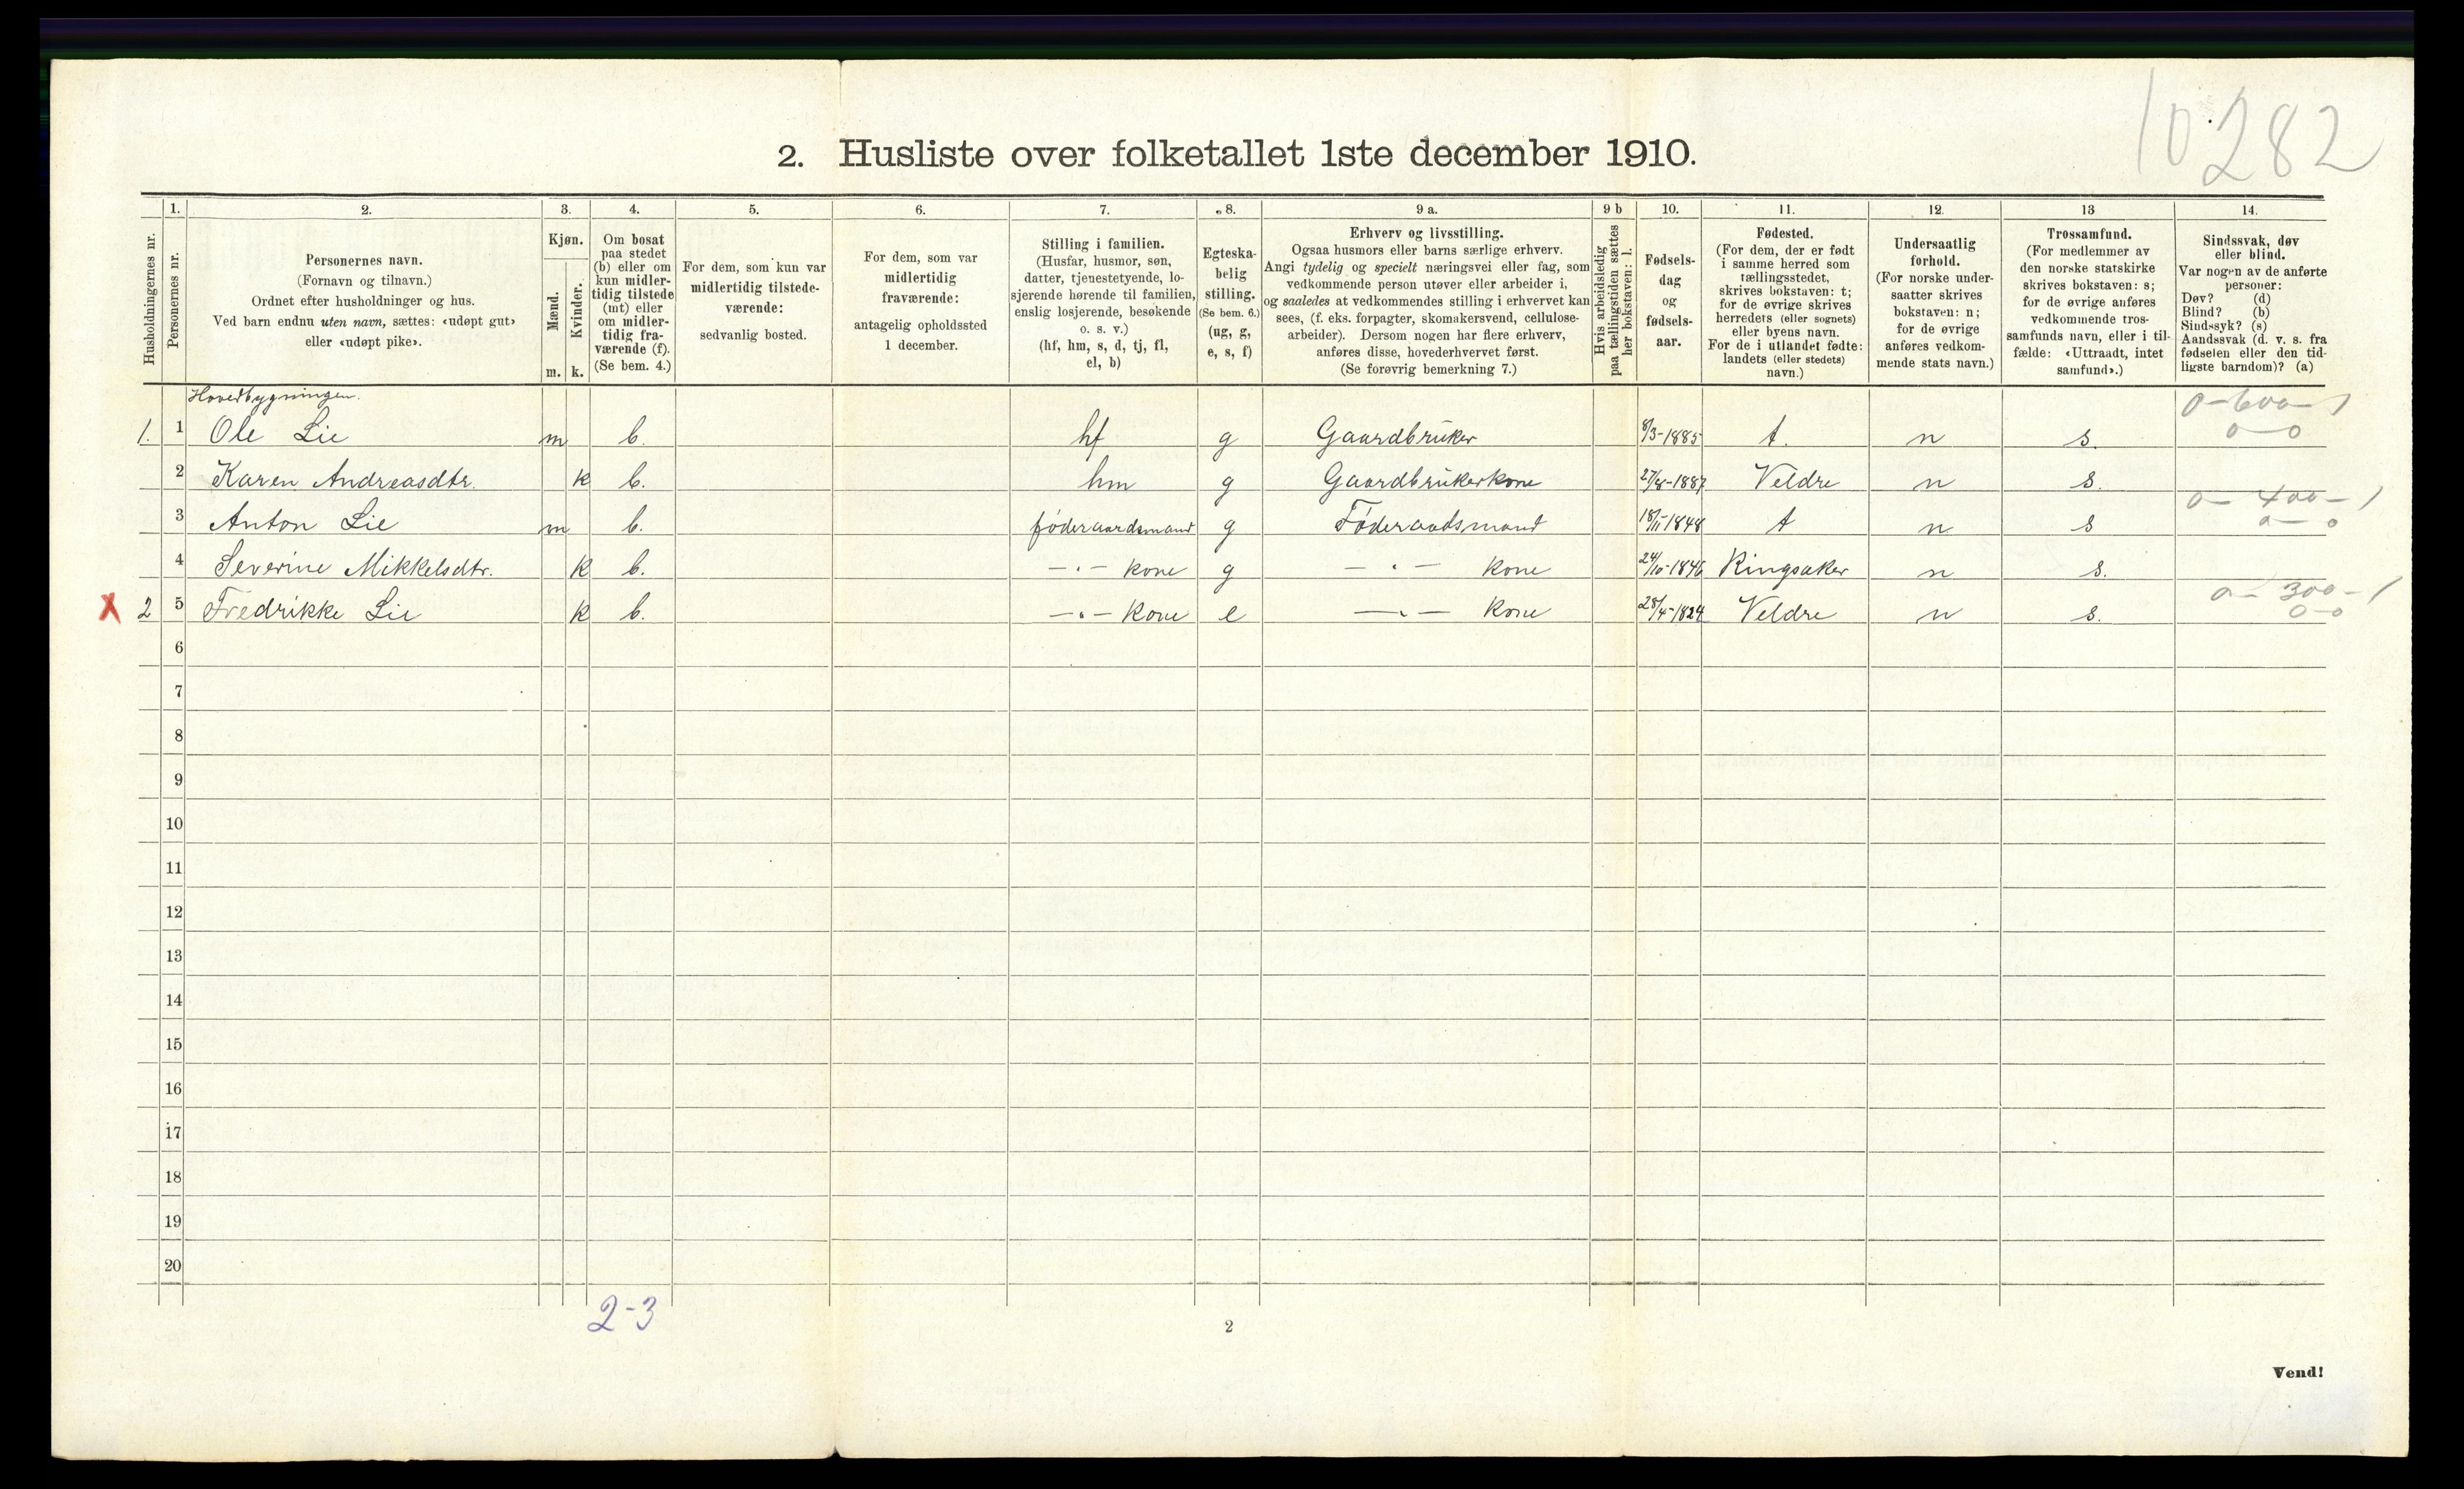 10282
2. Husliste over folketallet 1ste december 1910.
Husholdningernes nr.
1.
Personernes nr.
2.
Personernes navn.
(Fornavn og tilnavn.)
Ordnet efter husholdninger og hus.
Ved barn endnu uten navn, sættes: «udøpt gut»
eller «udøpt pike».
3.
Kjøn.
Mænd.
Kvinder.
m. k.
4.
Om bosat
paa stedet
(b) eller om
kun midler-
tidig tilstede
(mt) eller
om midler-
tidig fra-
værende (f).
(Se bem. 4.)
5.
For dem, som kun var
midlertidig tilstede-
værende:
sedvanlig bosted.
6.
For dem, som var
midlertidig
fraværende:
antagelig opholdssted
1 december.
7.
Stilling i familien.
(Husfar, husmor, søn,
datter, tjenestetyende, lo-
sjerende hørende til familien,
enslig losjerende, besøkende
o. s. v.)
(hf, hm, s, d, tj, fl,
el, b)
8.
Egteska-
belig
stilling.
(Se bem. 6.)
(ug, g,
e, s, f)
9 a.
Erhverv og livsstilling.
Ogsaa husmors eller barns særlige erhverv.
Angi tydelig og specielt næringsvei eller fag, som
vedkommende person utøver eller arbeider i,
og saaledes at vedkommendes stilling i erhvervet kan
sees, (f. eks. forpagter, skomakersvend, cellulose-
arbeider). Dersom nogen har flere erhverv,
anføres disse, hovederhvervet først.
(Se forøvrig bemerkning 7.)
9 b
Hvis arbeidsledig
paa tællingstiden sættes
her bokstaven: l.
10.
Fødsels-
dag
og
fødsels-
aar.
11.
Fødested.
(For dem, der er født
i samme herred som
tællingsstedet,
skrives bokstaven: t;
for de øvrige skrives
herredets (eller sognets)
eller byens navn.
For de i utlandet fødte:
landets (eller stedets)
navn.)
12.
Undersaatlig
forhold.
(For norske under-
saatter skrives
bokstaven: n;
for de øvrige
anføres vedkom-
mende stats navn.)
13
Trossamfund.
(For medlemmer av
den norske statskirke
skrives bokstaven: s;
for de øvrige anføres
vedkommende tros-
samfunds navn, eller i til-
fælde: «Uttraadt, intet
samfund».)
14.
Sindssvak, døv
eller blind.
Var nogen av de anførte
personer:
Døv? (d)
Blind? (b)
Sindssyk? (s)
Aandssvak (d. v. s. fra
fødselen eller den tid-
ligste barndom)? (a)
Hovedbygningen.
0-600-1
1. 1 Ole Lie m b. hf g Gaardbruker 8/3-1885 t. n s. 0-0
2 Karen Andreasdtr. k b. hm g Gaardbrukerkone 27/8-1887 Veldre n s.
0-400-1
3 Anton Lie m b. føderaardsmand g Føderaadsmand 18/11-1848 t n s 0-0
4 Severine Mikkelsdtr. k b. -"- kone g -"- kone 24/10-1846 Ringsaker n s.
0-300-1
X 2 5 Fredrikke Lie k b. -"- kone e -"- kone 28/4-1824 Veldre n s. 0-0
6
7
8
9
10
11
12
13
14
15
16
17
18
19
20
2-3
2
Vend!